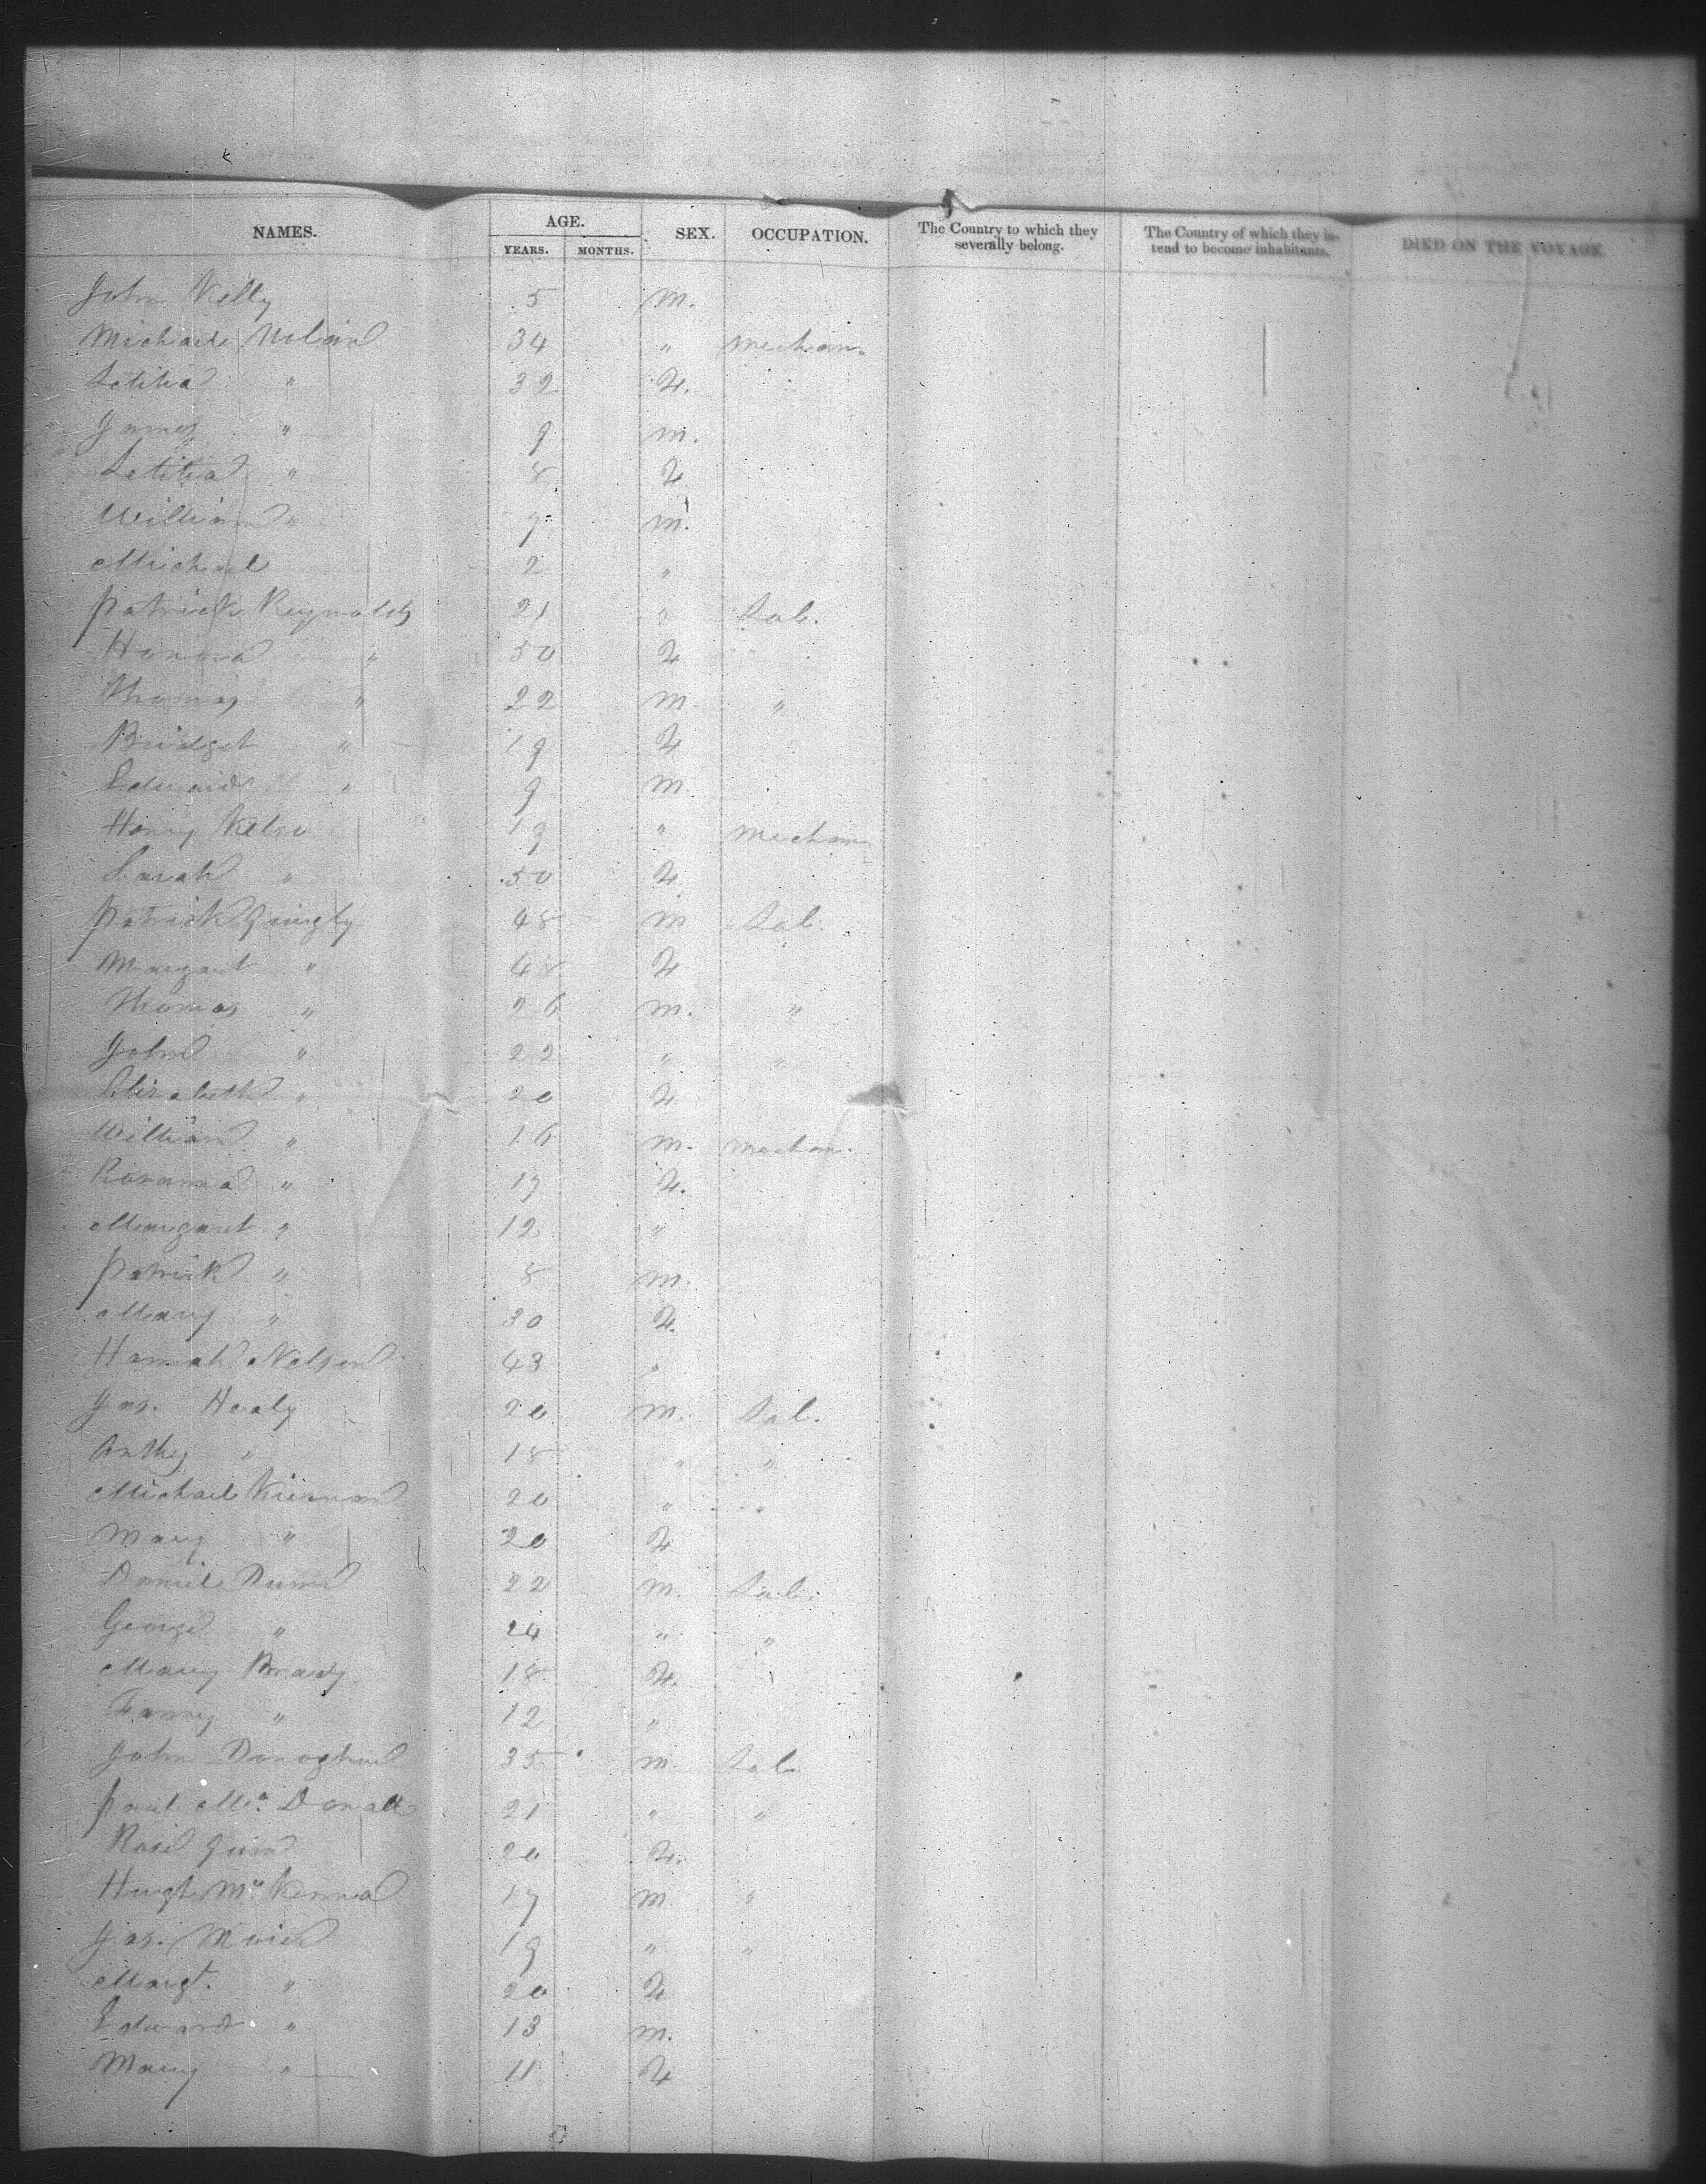 NAMES. AGE. SEX. OCCUPATION. The Country to which they severally belong. The Country of which they intend to become inhabitants. DIED ON THE VOYAGE.
YEARS. MONTHS.
John Kelly 5 m.
Michael Nolan 34 " mechan.
Letitia " 32 F.
James " 9 m.
Letitia " 8 F
William " 7 m.
Michael 2 "
Patrick Reynolds 21 " Lab.
Honora " 50 F
Thomas " 22 m "
Bridget " 19 F
Edward " 9 m
Henry Kelso 19 " mechan
Sarah " 50 F
Patrick 48 m Lab.
Margaret " F
Thomas " 26 m. "
John " 22 " "
Elizabeth " 20 F
William " 16 m. mechan.
Rosanna " F.
Margaret " 12 "
Patrick " 8 m.
Mary " 30 F.
Hannah Nelson 43 "
Jas. Healy 20 m. Lab.
Anthy " 18 " "
Michael Kiernan 20 " "
Mary " 20 F
Daniel Dunn 22 m. Lab.
George " 24 " "
Mary Brady 18 F.
Fanny " 12 "
John Donoghue 35 m. Lab.
21 " "
Rose 20 F.
Hugh Mc Kenna 17 m. "
Jas. 19 " "
Margt. " 20 F
Edward " 13 m.
Mary " 11 F